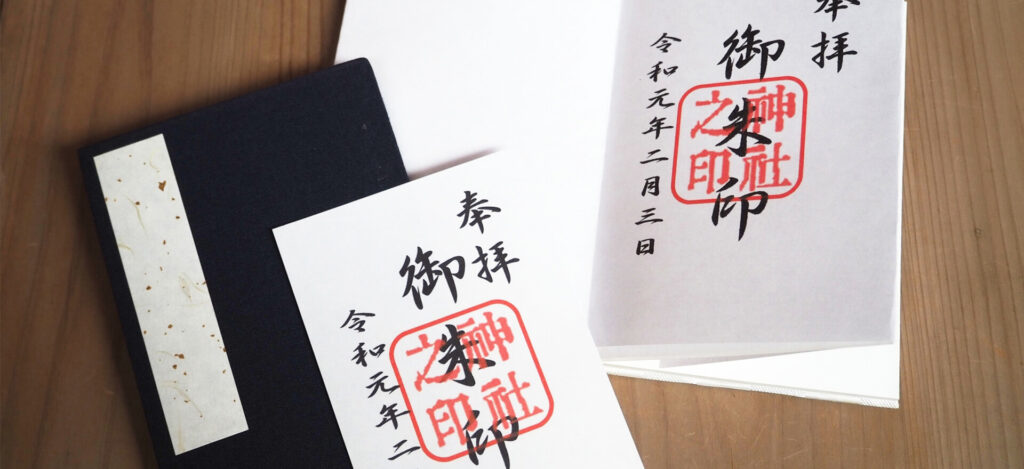 奉拝
御朱印
神社之印
令和元年二月三日
奉拝
御朱印
神社之印
令和元年二